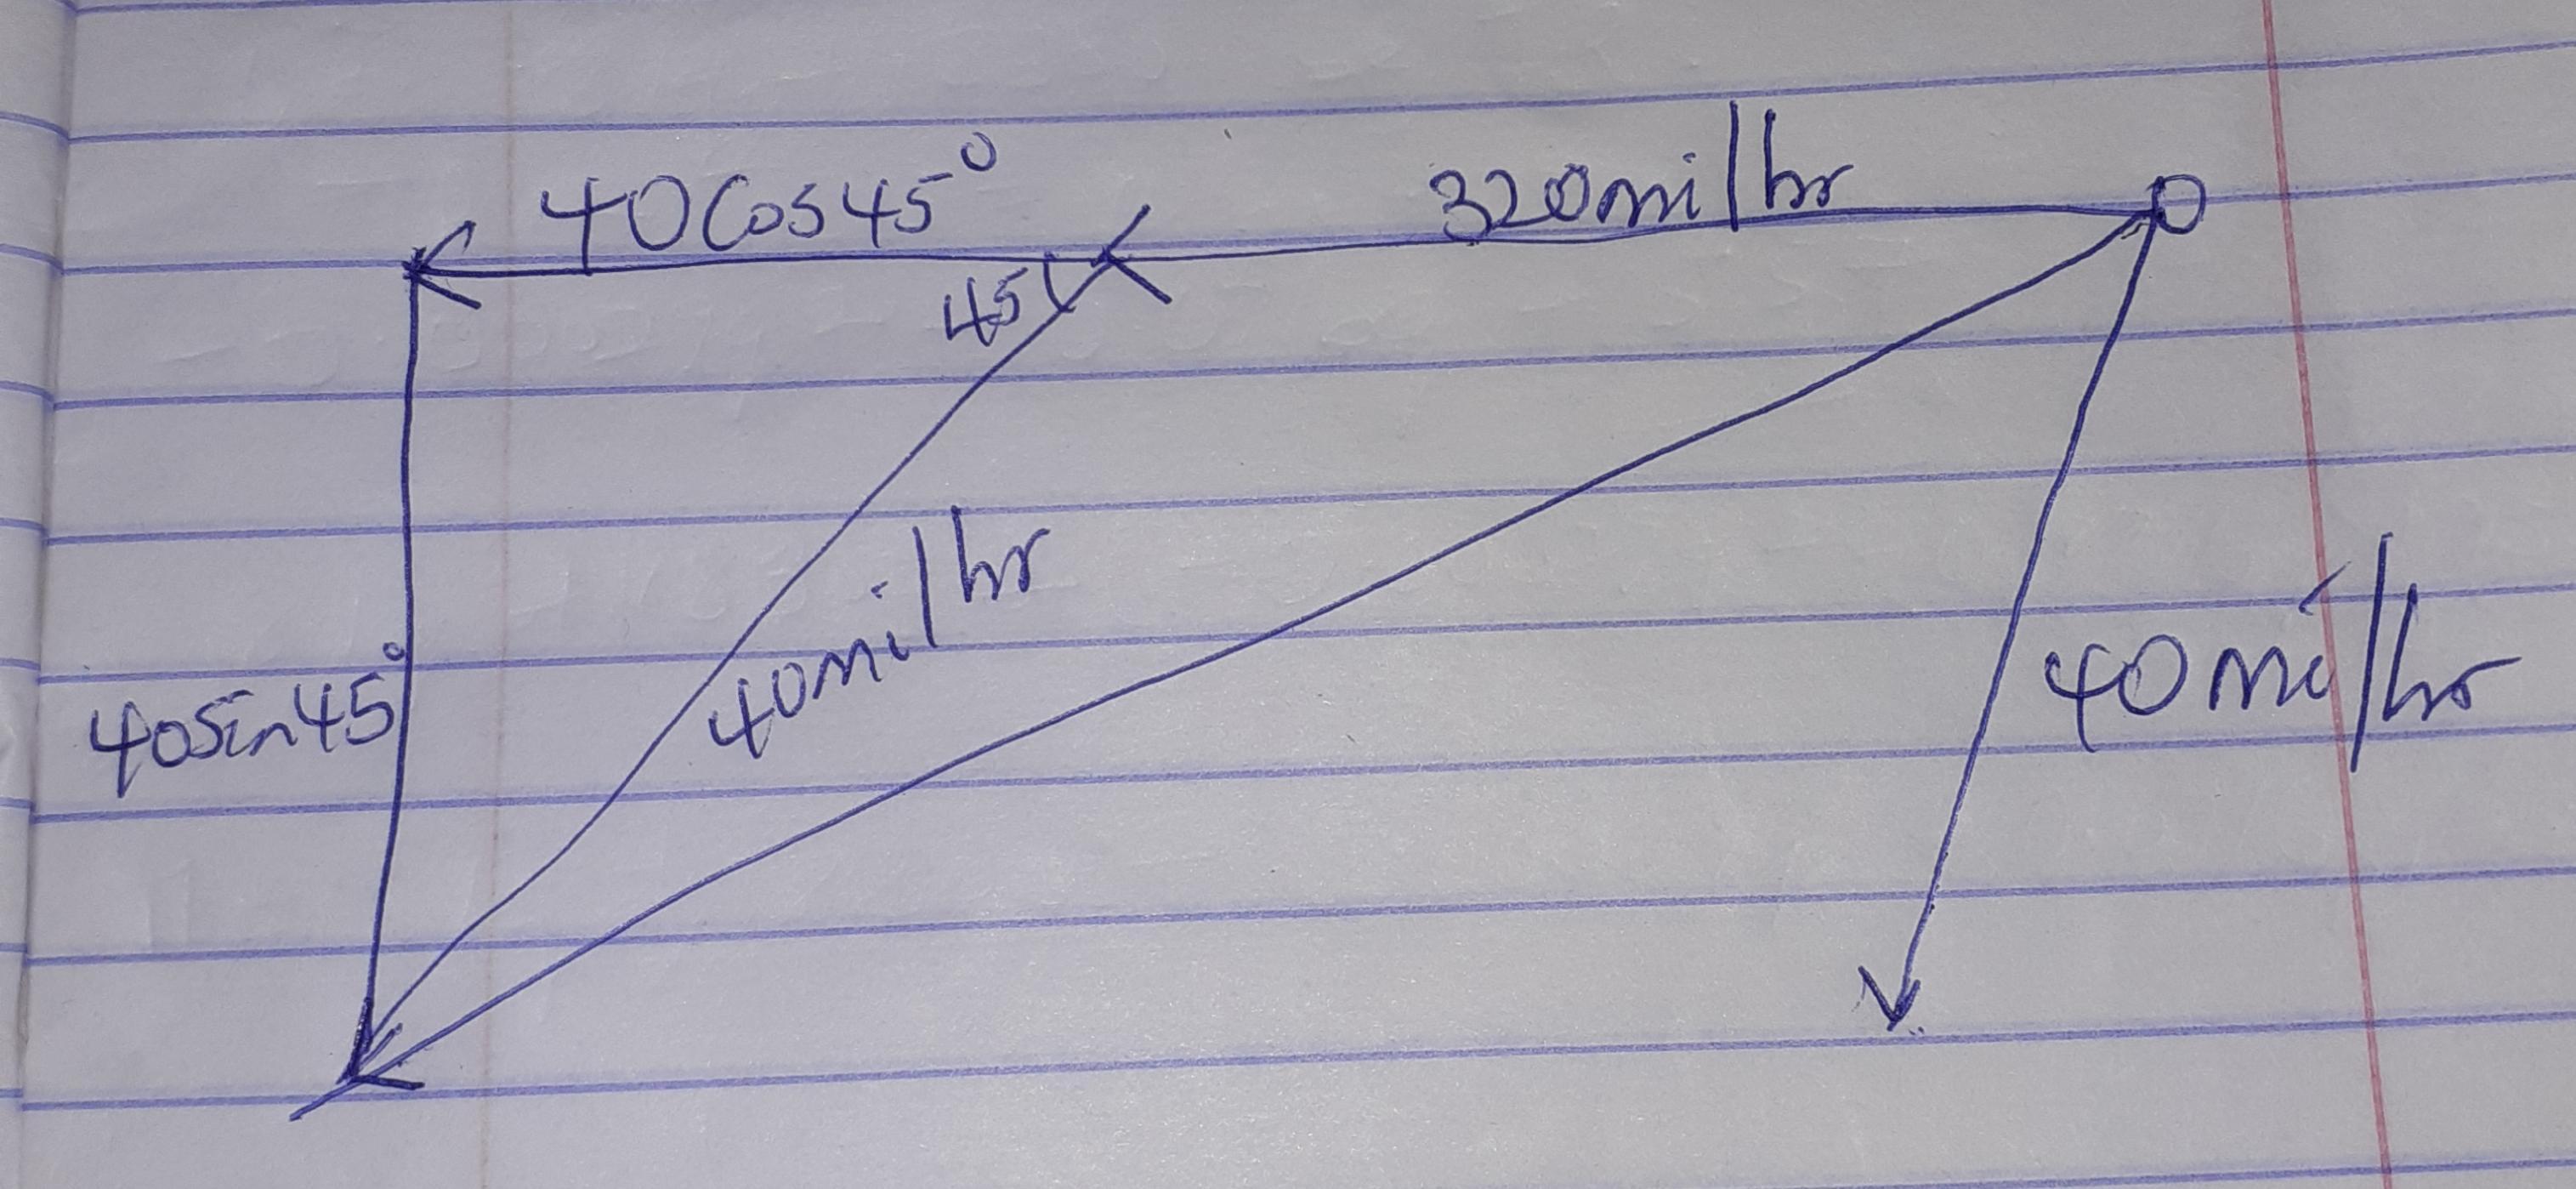 40Cos45°
320mi/hr
O
45
40mi/hr
40Sin45°
40mi/hr